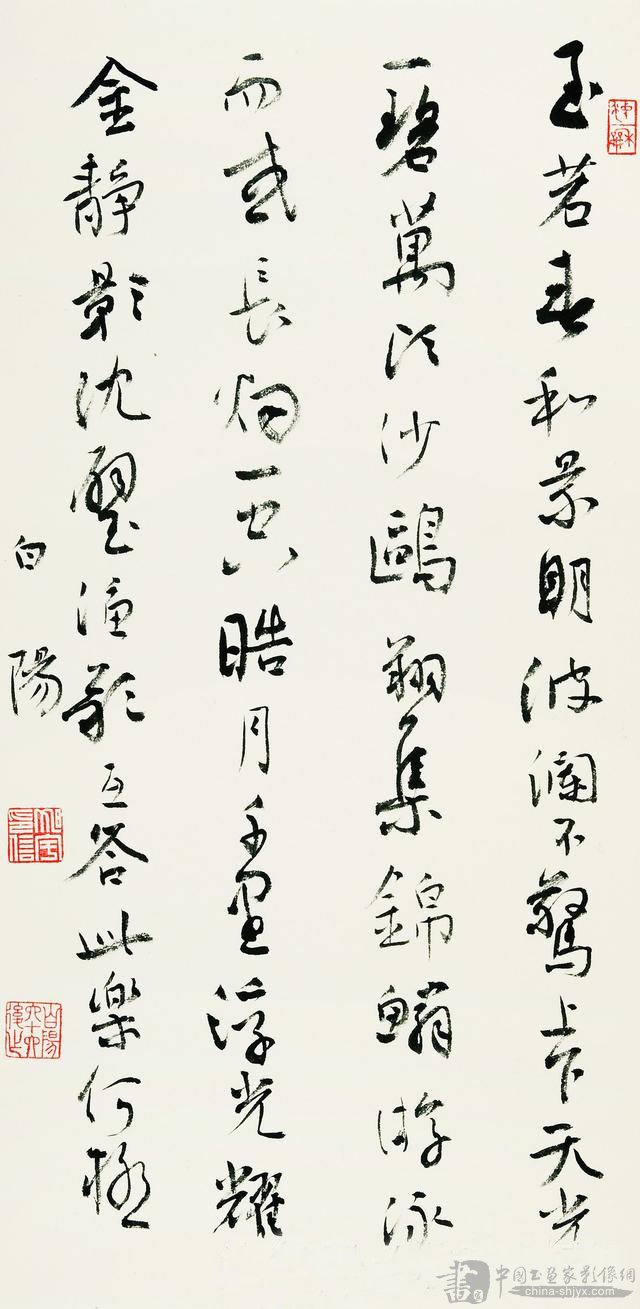 至若春和景明波瀾不驚上下天光
一碧萬頃沙鷗翔集錦鱗游泳
而或長烟一空皓月千里浮光耀
金靜影沈璧漁歌互答此樂何極
白陽
書
中國书画家影像網
china-shjyx.com